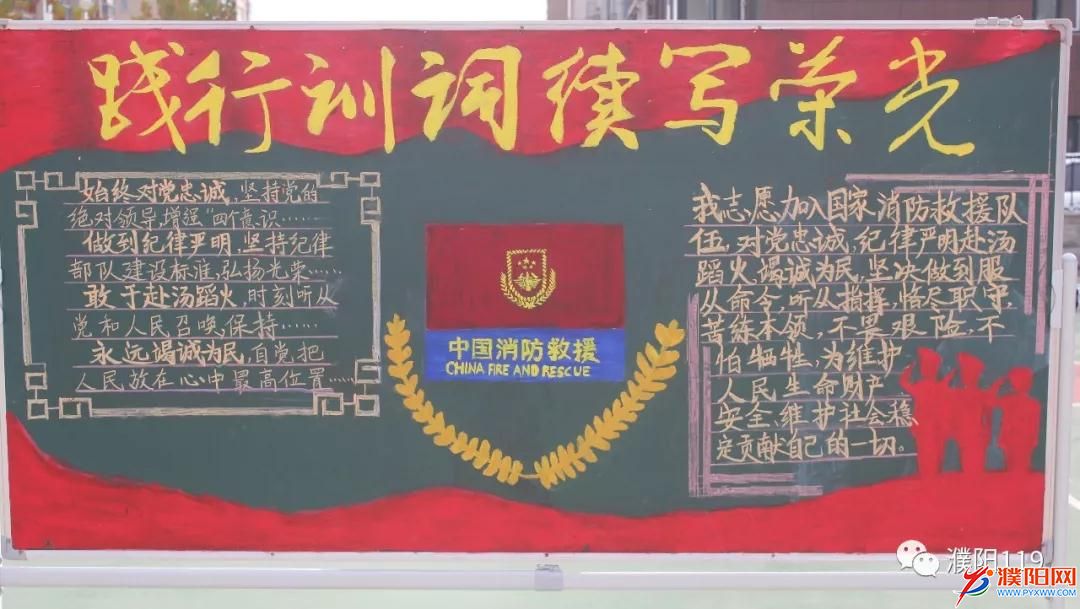 践行训词续写荣光
始终对党忠诚,坚持党的
绝对领导,增强"四个意识……
做到纪律严明,坚持纪律
部队建设标准,弘扬光荣……
敢于赴汤蹈火,时刻听从
党和人民召唤,保持……
永远竭诚为民,自觉把
人民放在心中最高位置……
中国消防救援
CHINA FIRE AND RESCUE
我志愿加入国家消防救援队
伍,对党忠诚,纪律严明赴汤
蹈火竭诚为民,坚决做到服
从命令,听从指挥,恪尽职守,
苦练本领,不畏艰险,不
怕牺牲,为维护
人民生命财产
安全,维护社会稳
定贡献自己的一切。
濮阳119
濮阳网
WWW.PYXWW.COM